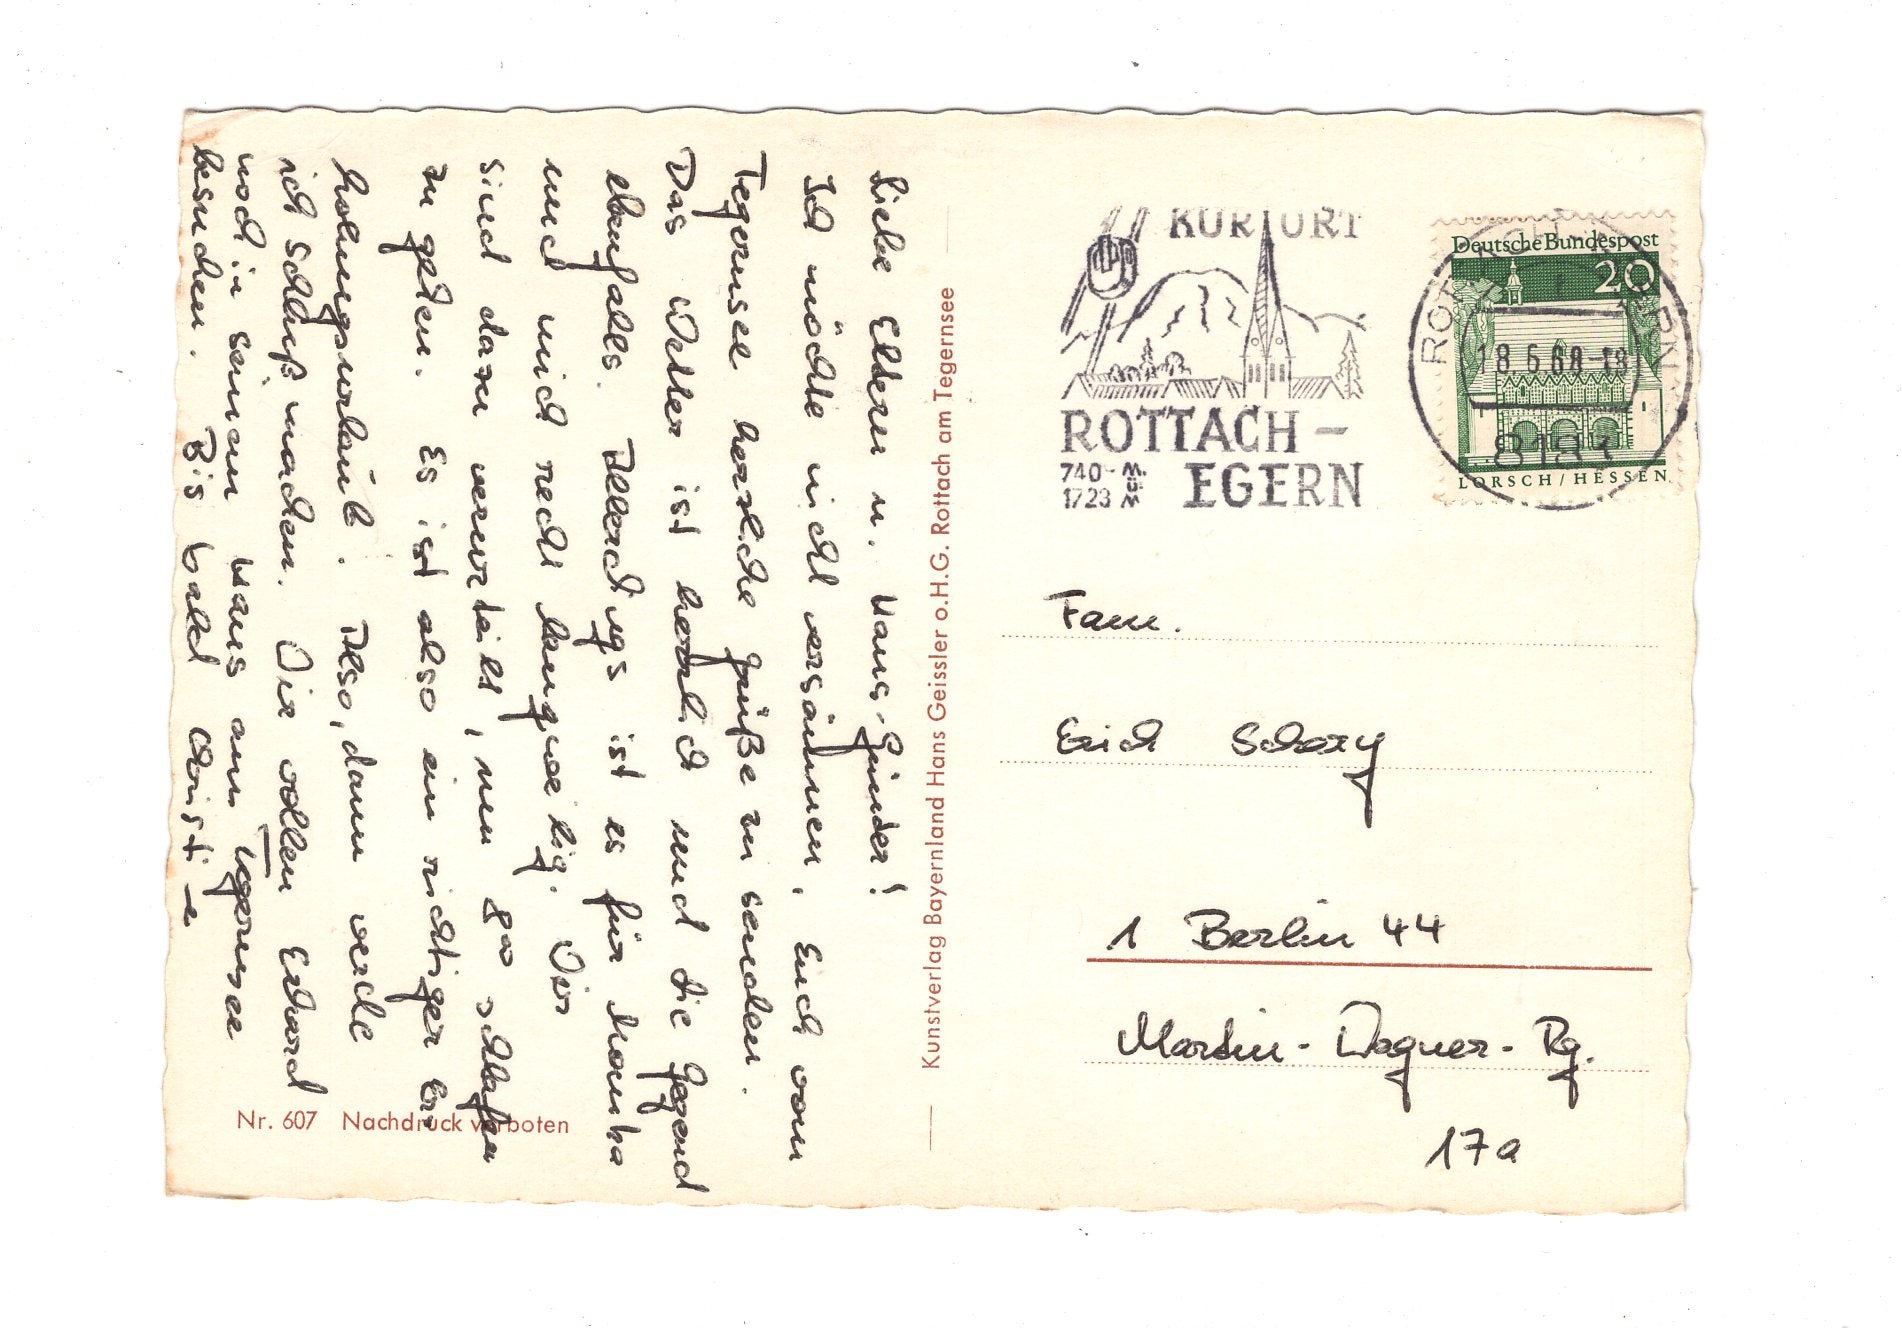 Liebe Eltern u. Hans-Günder!
Ich möchte nicht versäumen, Euch vom
Tegernsee herzliche Grüße zu senden.
Das Wetter ist herrlich und die Gegend
ebenfalls. Allerdings ist es für Monika
und mich recht langweilig. Wir
sind dazu verurteilt, um 800 schlafen
zu gehen. Es ist also ein richtiger Er-
holungsurlaub. Also, dann werde
ich schluß machen. Wir wollen Erhard
noch in seinem Haus am Tegernsee
besuchen. Bis bald Christi
Kunstverlag Bayernland Hans Geissler o.H.G. Rottach am Tegernsee
Nr. 607 Nachdruck verboten
KURORT
ROTTACH-
EGERN
740-
1723 m
ROTTACH-EGERN
18.6.68-18
8183
Deutsche Bundespost
20
LORSCH/HESSEN
Fam.
Erich
1 Berlin 44
Martin-Wagner-Rg.
17a